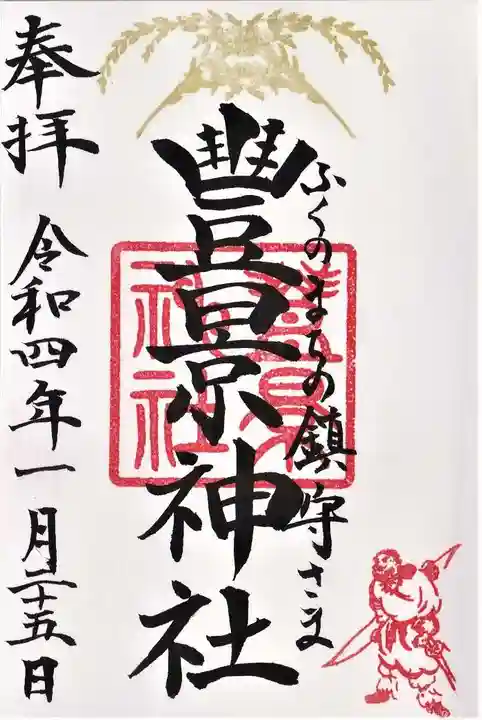 ふくのまちの鎮守さま
豐景神社
奉拝 令和四年一月二十五日